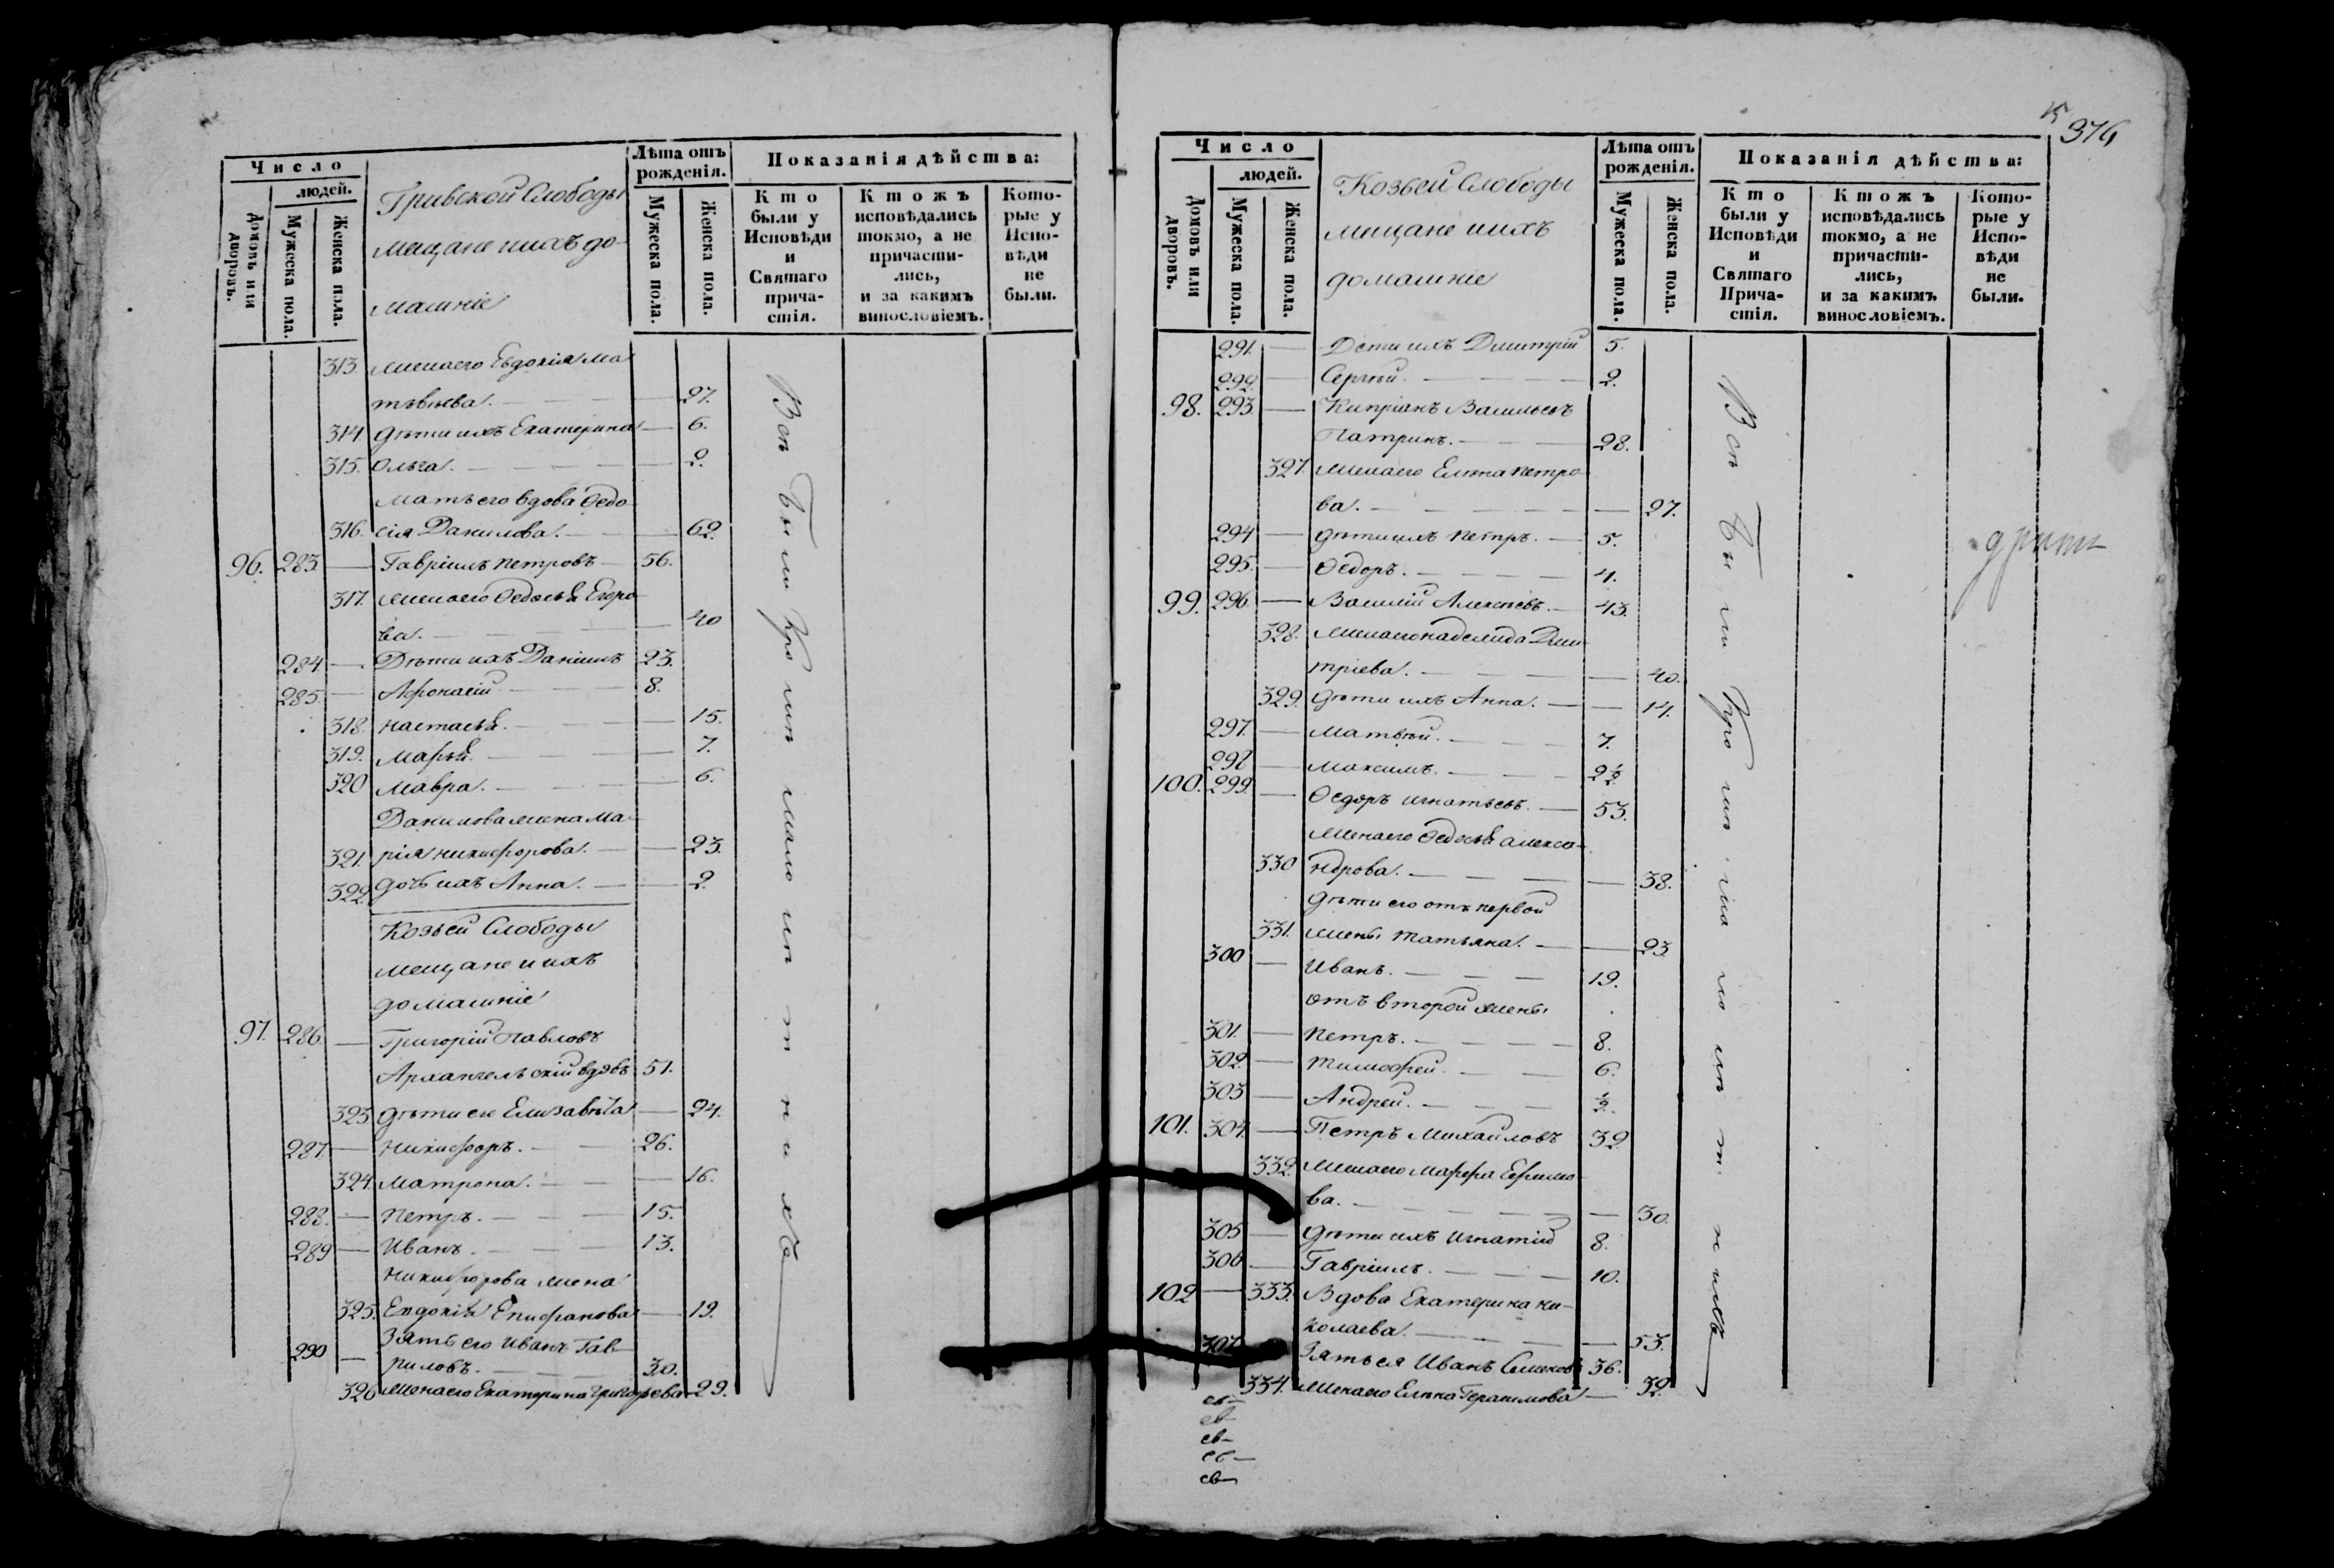 Число
людей.
Домовъ или дворовъ.
Мужеска пола.
Женска пола.
Гривской Слободы
мещане иихъ до-
машніе
Лѣта отъ рожденія.
Мужеска пола.
Женска пола.
Показанія дѣйства:
Кто были у Исповѣди и Святаго причастія.
Ктожъ исповѣдались токмо, а не причастились, и за какимъ винословіемъ.
Которые у Исповѣди не были.
313. жена его Евдокія Ма
твѣева. — 27.
314. дѣти ихъ Екатерина — 6.
315. Ольга. — 2.
мать его вдова Ѳедо
316. сія Данилова. — 62.
96. 283. — Гавріилъ Петровъ — 56.
317. жена его Ѳедосья Егоро
ва. — 40
284. — Дѣти ихъ Даніилъ 23.
285. — Афонасій — 8.
318. Настасья. — 15.
319. Марья. — 7.
320 Мавра. — 6.
Данилова жена Ма-
321. рія Никифорова. — 23.
322. дочь ихъ Анна. — 2.
Козьей Слободы
мещане и ихъ
домашніе
97. 286. — Григорій Павловъ
Архангельскій вдовъ 51.
323 дѣти его Елизавета — 24.
287. — Никифоръ. — 26.
324. Матрона. — 16.
288. — Петръ. — 15.
289 — Иванъ. — 13.
Никифорова жена
325. Евдокія Епифанова — 19.
Зять его Иванъ Гав-
290 — риловъ. — 30.
326 жена его Екатерина Григорьева — 29.
Всѣ были кромѣ малолѣтнихъ
374
Число
людей.
Домовъ или дворовъ.
Мужеска пола.
Женска пола.
Козьей Слободы
мещане иихъ
домашніе
Лѣта отъ рожденія.
Мужеска пола.
Женска пола.
Показанія дѣйства:
Кто были у Исповѣди и Святаго Причастія.
Ктожъ исповѣдались токмо, а не причастились, и за какимъ винословіемъ.
Которые у Исповѣди не были.
291. — Дѣти ихъ Димитрій 5.
292. — Сергѣй. — 2.
98. 293. — Кипріанъ Васильевъ
Патринъ. — 28.
327. жена его Елена Петро
ва. — 27.
294 — дѣти ихъ Петръ. — 5.
295. — Ѳедоръ. — 4.
99. 296. — Василій Алексѣевъ. — 43.
328. жена его Надежда Дми
тріева. — 40.
329. дѣти ихъ Анна. — 14.
297. — Матвѣй. — 7.
298 — Максимъ. — 2 1/2
100. 299. — Ѳедоръ Игнатьевъ. — 53.
жена его Ѳедосья Алекса-
330 ндрова. — 38.
дѣти его отъ первой
331. жены Татьяна. — 23
300 — Иванъ. — 19.
отъ второй жены
301. — Петръ. — 8.
302. — Тимофей. — 6.
303 — Андрей. — 1/2.
101. 304. — Петръ Михайловъ 32
332. жена его Марфа Ефимо
ва. — 30.
305 — дѣти ихъ Игнатій 8.
306 — Гавріилъ. — 10.
102 — 333. Вдова Екатерина Ни-
колаева. — 53.
307 Зять ея Иванъ Семеновъ 36.
334. жена его Елена Герасимова — 32.
Всѣ были кромѣ малолѣтнихъ
св-
св-
св-
св-
св-